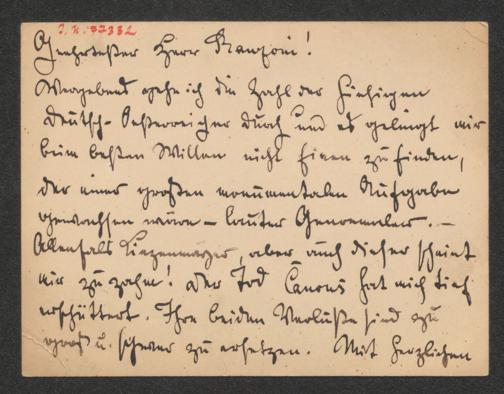 I. N.: 37332
Geehrtester Herr Ranzoni!
Vergebens gehe ich die Zahl der hiesigen
Deutsch-Oesterreicher durch und es gelingt mir
beim besten Willen nicht Einen zu finden,
der einer großen monumentalen Aufgabe
gewachsen wäre – lauter Genremaler. –
Allenfalls Liezenmayer, aber auch dieser scheint
mir zu zahm! Der Tod Canons hat mich tief
erschüttert. Ihre beiden Verluste sind zu
groß u. schwer zu ersetzen. Mit herzlichen